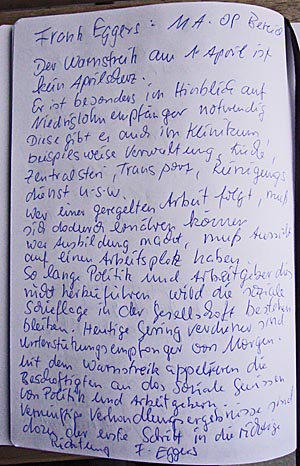 Frank Eggers: MA. OP Bereich
Der Warnstreik am 1 April ist
kein Aprilscherz.
Er ist besonders im Hinblick auf
Niedriglohnempfänger notwendig
Diese gibt es auch im Klinikum
beispielsweise Verwaltung, Küche,
Zentralsteri, Transport, Reinigungs
dienst u.s.w.
Wer einer geregelten Arbeit folgt, muß
sich dadurch ernähren können
wer Ausbildung macht, muß Aussicht
auf einen Arbeitsplatz haben.
So lange Politik und Arbeitgeber dies
nicht herbeiführen wird die soziale
Schieflage in der Gesellschaft bestehen
bleiben. Heutige Geringverdiener sind
Unterstützungsempfänger von Morgen.
Mit dem Warnstreik appelieren die
Beschäftigten an das soziale Gewissen
von Politik und Arbeitgebern.
Vernünftige Verhandlungsergebnisse sind
dazu der erste Schritt in die richtige
Richtung F. Eggers